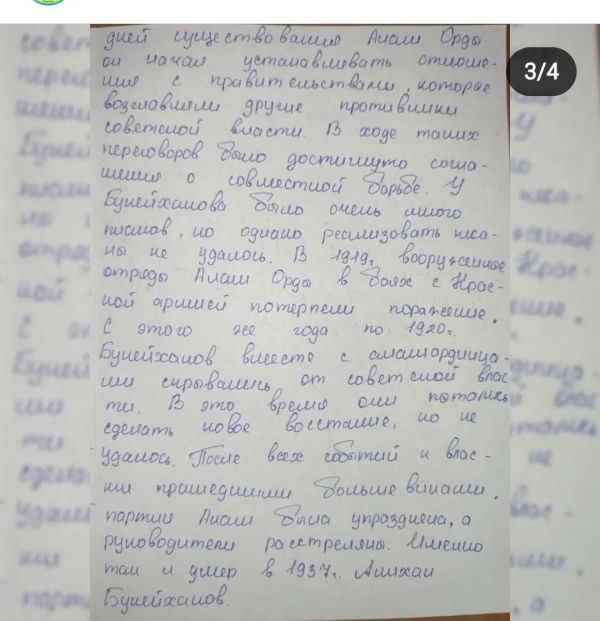 3/4
дней существования Алаш Орды
он начал устанавливать отноше-
ния с правительствами, которые
возглавляли другие противники
советской власти. В ходе таких
переговоров было достигнуто согла-
шения о совместной борьбе. У
Букейханова было очень много
планов, но однако реализовать пла-
ны не удалось. В 1919г. вооруженные
отряды Алаш Орды в боях с Крас-
ной армией потерпели поражение.
С этого же года по 1920г.
Букейханов вместе с алашординца-
ми скрывались от советской влас
ти. В это время они пытались
сделать новое восстание, но не
удалось. После всех событий и влас-
ти пришедшими большевиками.
партия Алаш была упразднена, а
руководители расстреляны. Именно
так и умер в 1937г. Алихан
Букейханов.